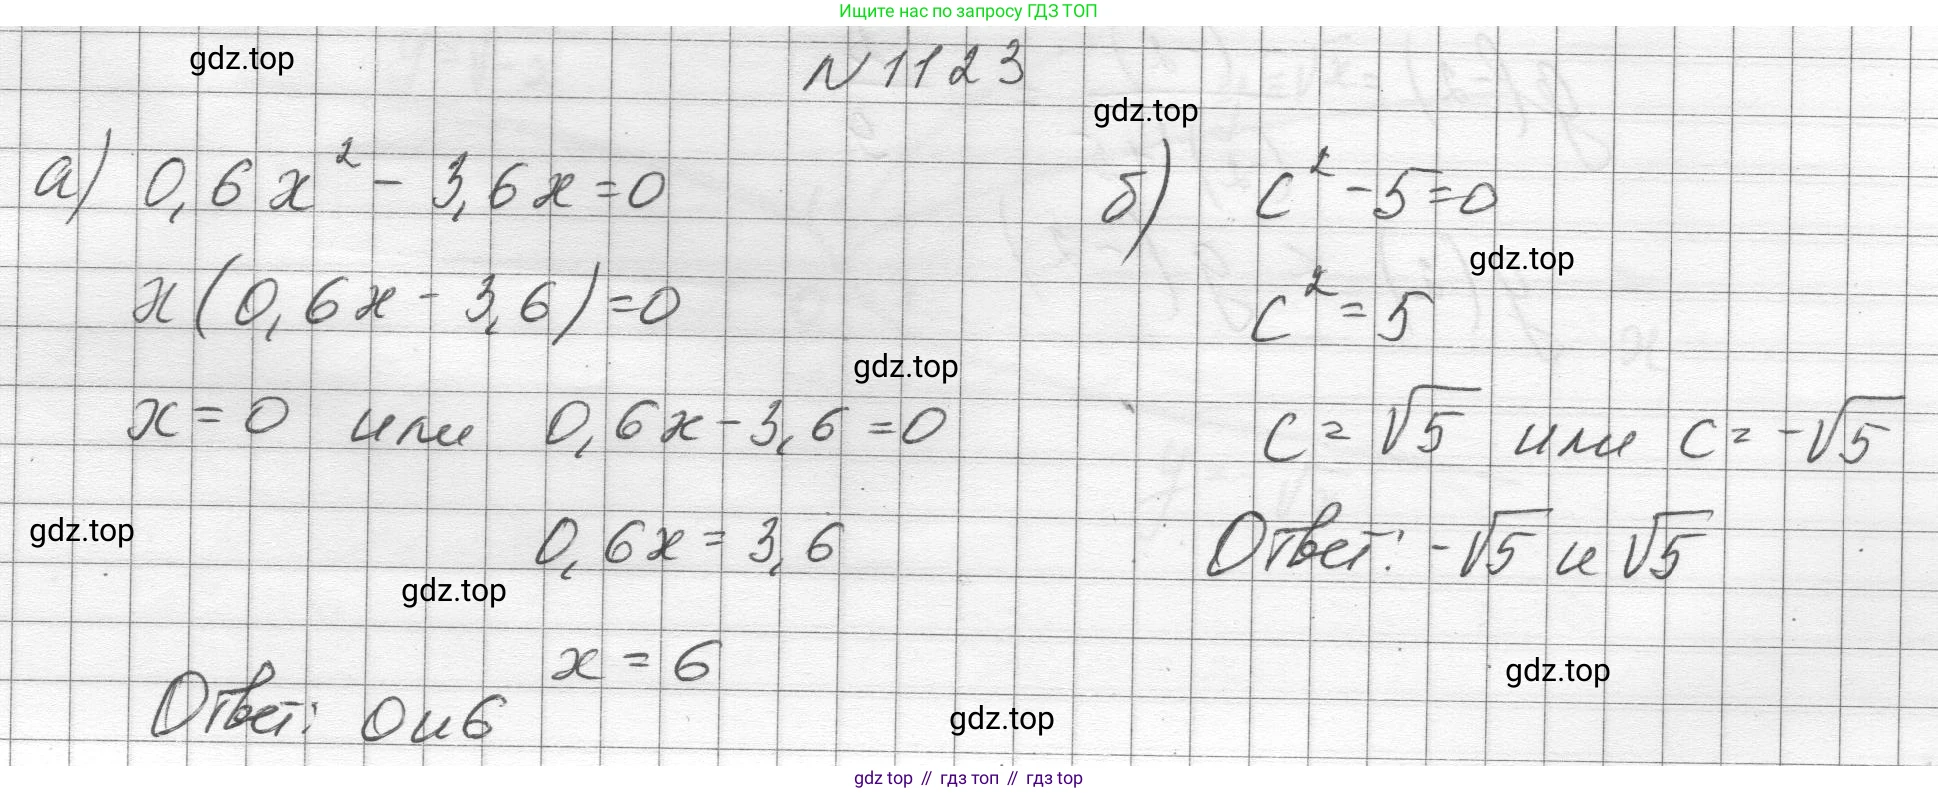 Ищите нас по запросу ГДЗ ТОП
gdz.top
N 1123
gdz.top
а) 0,6x² - 3,6x = 0
x(0,6x - 3,6) = 0
gdz.top
x = 0 или 0,6x - 3,6 = 0
gdz.top
0,6x = 3,6
gdz.top
x = 6
Ответ: 0 и 6
б) c² - 5 = 0
gdz.top
c² = 5
c = √5 или c = -√5
Ответ: -√5 и √5
gdz.top
gdz.top
gdz top // гдз топ // гдз top